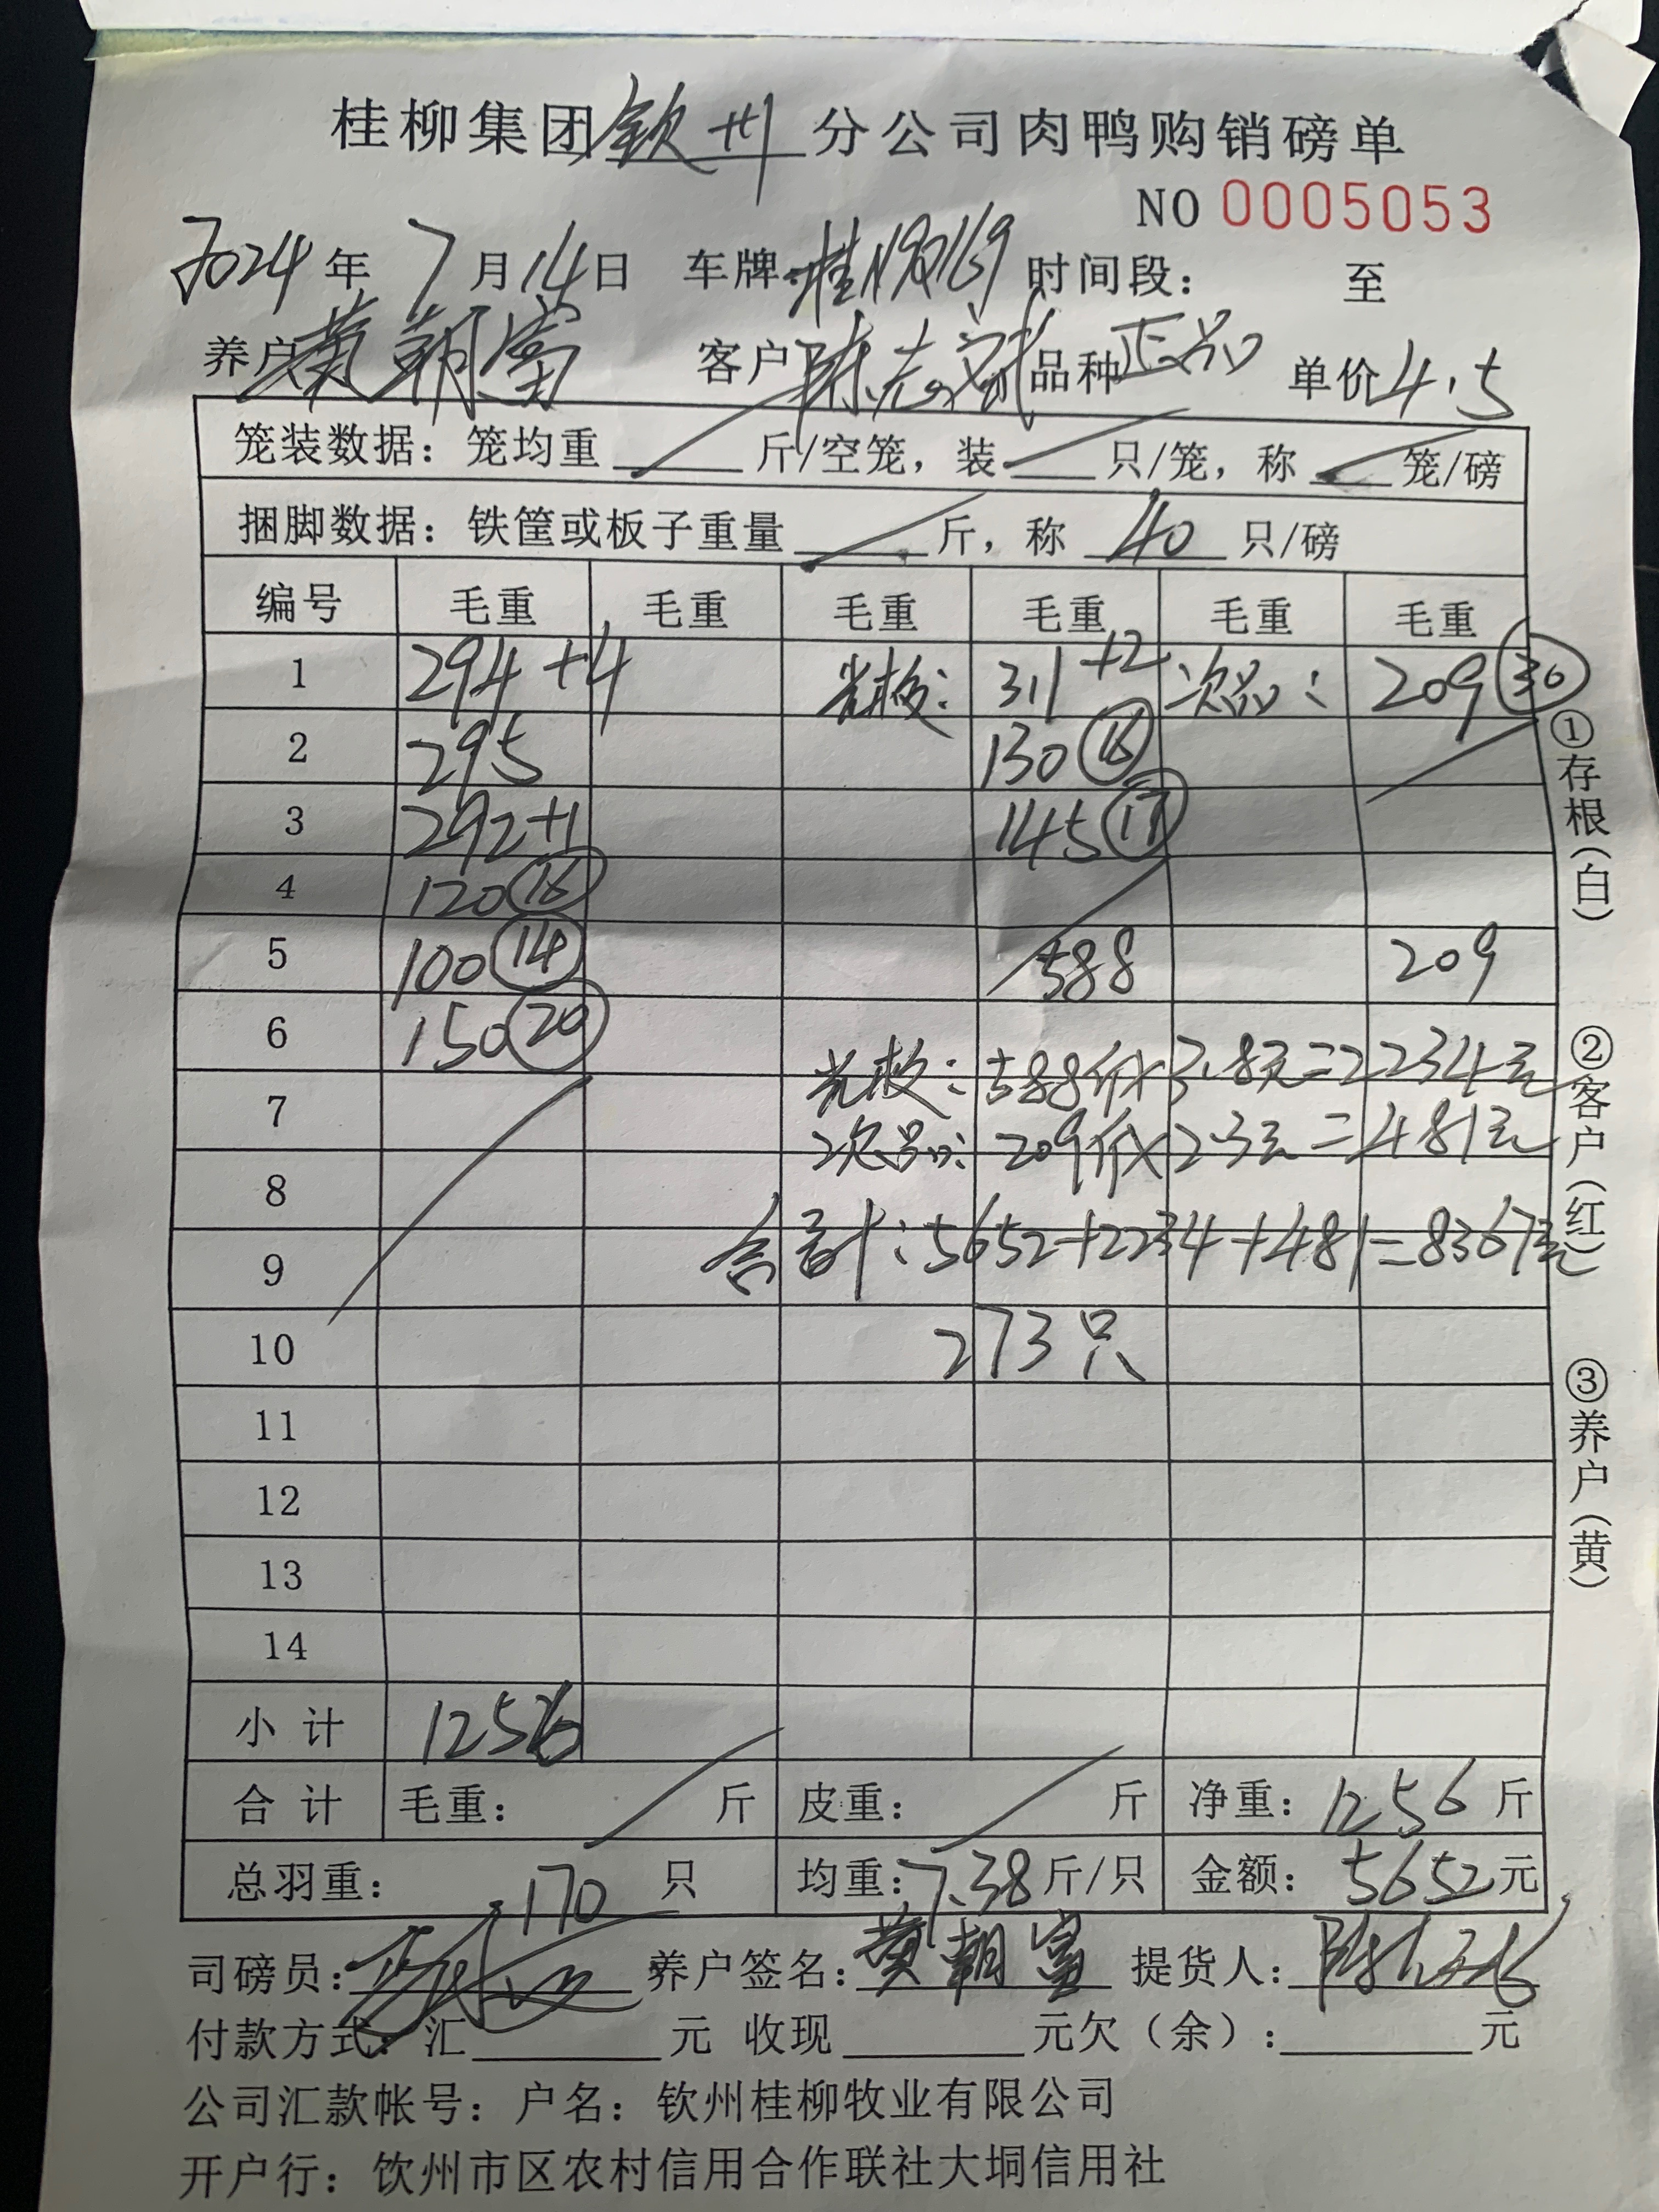 桂柳集团钦州分公司肉鸭购销磅单
NO 0005053
2024年7月14日 车牌:桂N90769 时间段: 至
养户黄朝富 客户陈志斌 品种正品 单价4.5
笼装数据:笼均重 斤/空笼,装 只/笼,称 笼/磅
捆脚数据:铁筐或板子重量 斤,称 40 只/磅
编号 毛重 毛重 毛重 毛重 毛重 毛重
1 294+4 311+2 次品: 209 30
2 295 130
3 292+1 145 17
4 120 16
5 100 14 588 209
6 150 20
588斤×3.8元=2234元
7
次品: 209斤×2.3元=481元
8
9 合计:5652+2234+481=8367元
10 273只
11
12
13
14
小计 1256
合计 毛重: 斤 皮重: 斤 净重: 1256 斤
总羽重: 170 只 均重: 7.38 斤/只 金额: 5652元
司磅员: 养户签名:黄朝富 提货人:
付款方式:汇 元 收现 元欠(余): 元
公司汇款帐号:户名:钦州桂柳牧业有限公司
开户行:饮州市区农村信用合作联社大垌信用社
①存根(白)
②客户(红)
③养户(黄)